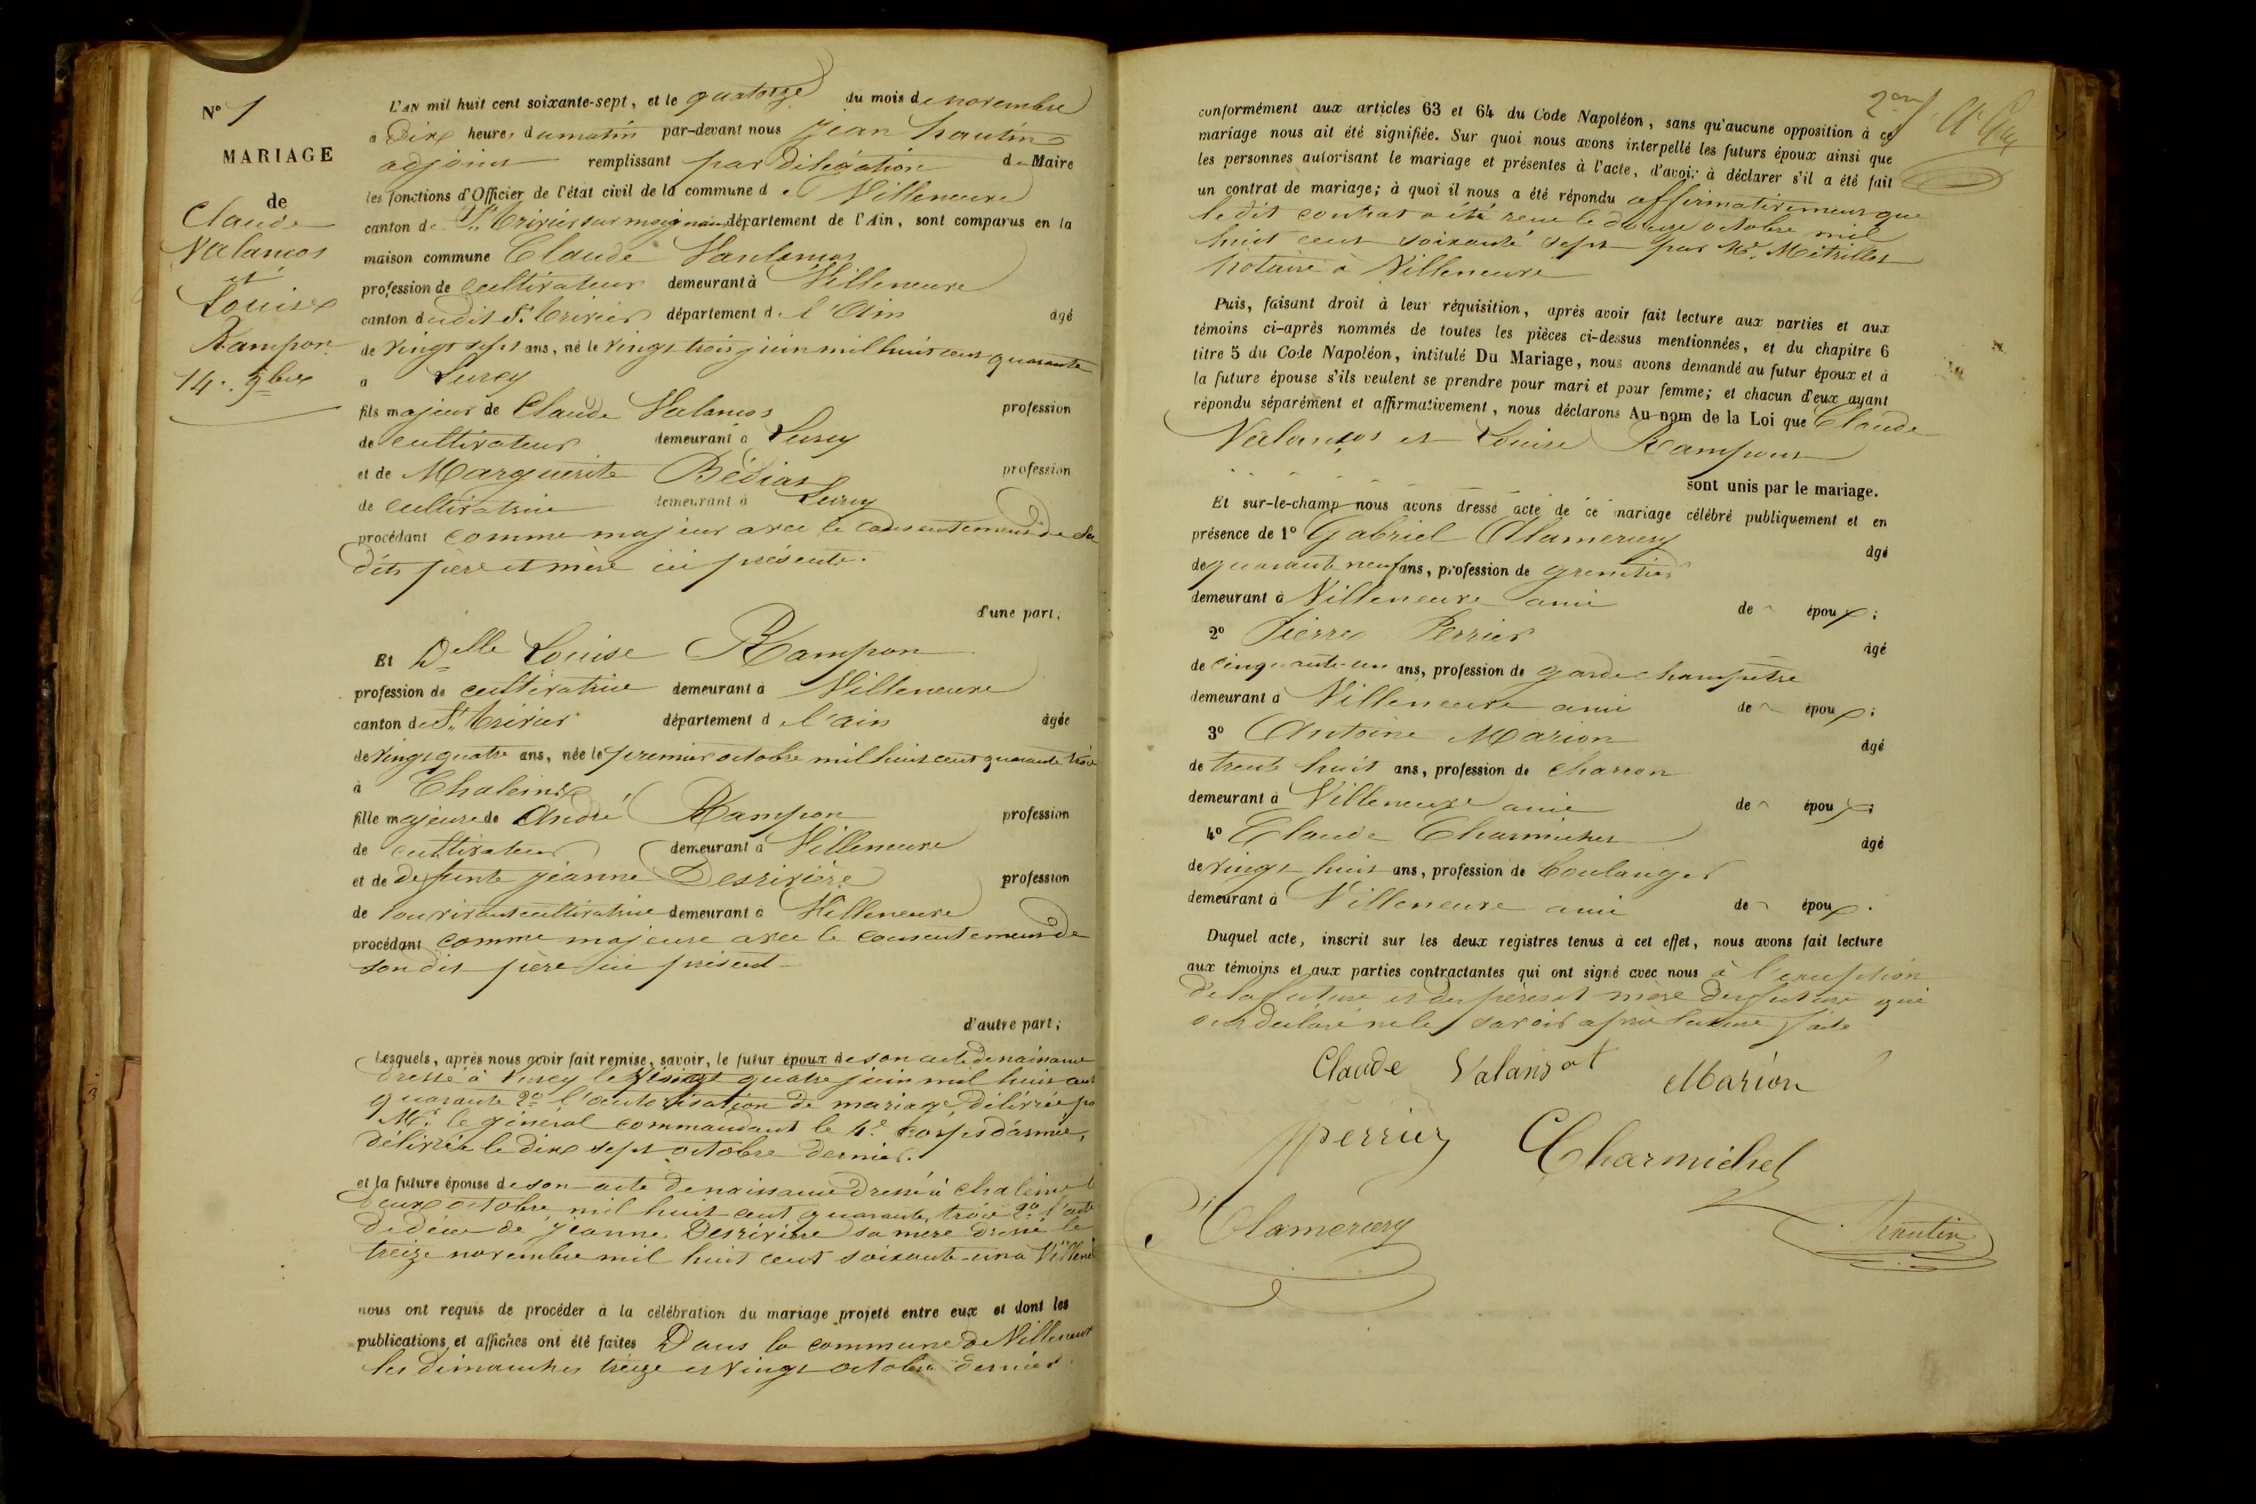 N° 1
MARIAGE
de
Claude
Valancos
et
Louise
Rampon
14. 9bre
L'AN mil huit cent soixante-sept, et le quatorze du mois de novembre
à Dix heures du matin par-devant nous Jean hautin
adjoint remplissant par délégation de Maire
les fonctions d'Officier de l'état civil de la commune de Villeneuve
canton de St. Trivier sur moignans département de l'Ain, sont comparus en la
maison commune Claude
profession de cultivateur demeurant à Villeneuve
canton dudit St. Trivier département de l'Ain âgé
de vingt sept ans, né le vingt trois juin mil huit cent quarante
à Lurcy
fils majeur de Claude Valancos profession
de cultivateur demeurant à Lurcy
et de Marguerite profession
de cultivatrice demeurant à Lurcy
procédant comme majeur avec le consentement de ses
dits père et mère ici présents.
d'une part;
Et Delle Louise Rampon
profession de cultivatrice demeurant à Villeneuve
canton de St. Trivier département de l'ain âgée
de vingt quatre ans, née le premier octobre mil huit cent quarante trois
à Chaleins
fille majeure de André Rampon profession
de cultivateur demeurant à Villeneuve
et de defunte jeanne Desrivière profession
de son vivant cultivatrice demeurant à Villeneuve
procédant comme majeure avec le consentement de
son dit père ici présent
d'autre part;
Lesquels, après nous avoir fait remise, savoir, le futur époux de son acte de naissance
dressé à Lurcy le vingt quatre juin mil huit cent
quarante 2° l'autorisation de mariage délivrée pa
Mr. le général commandant le 4e corps d'armée,
délivrée le dix sept octobre dernier.
et la future épouse de son acte de naissance dressé à chaleins l
deux octobre mil huit cent quarante trois 2° l'acte
de décès de Jeanne Desrivière sa mere dressé le
treize novembre mil huit cent soixante-un à Villene
nous ont requis de procéder à la célébration du mariage projeté entre eux et dont les
publications et affiches ont été faites Dans la commune de Villeneuve
les dimanches treize et vingt octobre dernier
conformément aux articles 63 et 64 du Code Napoléon, sans qu'aucune opposition à ce
mariage nous ait été signifiée. Sur quoi nous avons interpellé les futurs époux ainsi que
les personnes autorisant le mariage et présentes à l'acte, d'avoir à déclarer s'il a été fait
un contrat de mariage; à quoi il nous a été répondu affirmativement que
le dit contrat a été reçu le douze octobre mil
huit cent soixante sept par Me. Métrillot
notaire à Villeneuve
Puis, faisant droit à leur réquisition, après avoir fait lecture aux parties et aux
témoins ci-après nommés de toutes les pièces ci-dessus mentionnées, et du chapitre 6
titre 5 du Code Napoléon, intitulé Du Mariage, nous avons demandé au futur époux et à
la future épouse s'ils veulent se prendre pour mari et pour femme; et chacun d'eux ayant
répondu séparément et affirmativement, nous déclarons Au nom de la Loi que Claude
Valancos et Louise Rampon
sont unis par le mariage.
Et sur-le-champ nous avons dressé acte de ce mariage célébré publiquement et en
présence de 1° Gabriel Clamerey
âgé
de quarante neuf ans, profession de
demeurant à Villeneuve ami de époux;
2° Pierre Perrier
âgé
de cinquante-un ans, profession de garde champêtre
demeurant à Villeneuve ami de époux;
3° Antoine Marion
âgé
de trente huit ans, profession de charron
demeurant à Villeneuve ami de époux;
4° Claude Charmichel
âgé
de vingt huit ans, profession de boulanger
demeurant à Villeneuve ami de époux.
Duquel acte, inscrit sur les deux registres tenus à cet effet, nous avons fait lecture
aux témoins et aux parties contractantes qui ont signé avec nous à l'exception
de la future et des pères et mère des futurs qui
ont déclaré ne le savoir après lecture faite
Claude Valansot Marion
perrier Charmichel
Clamerey hautin